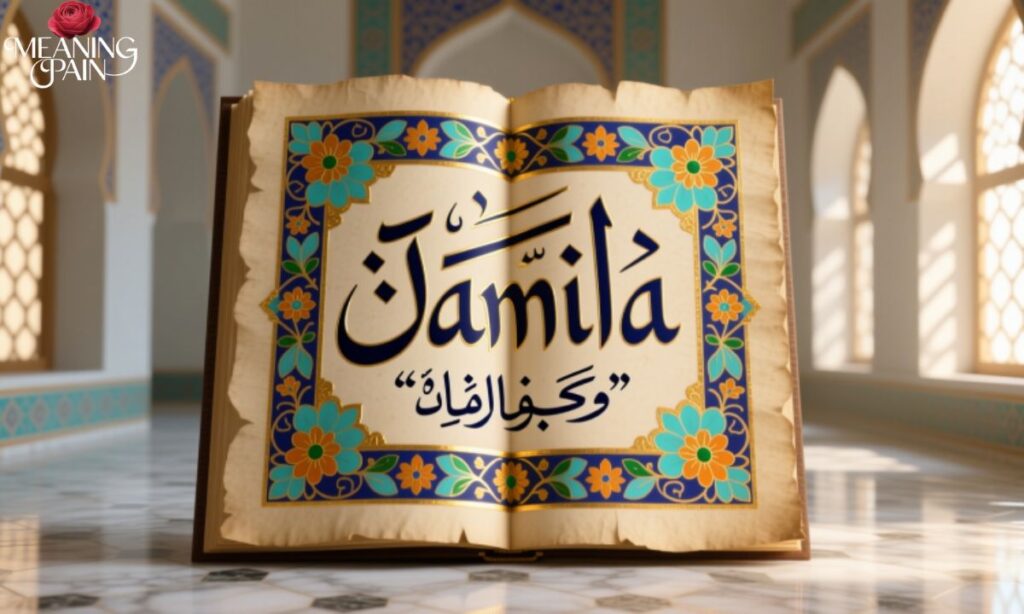 MEANING
PAIN
Jamila